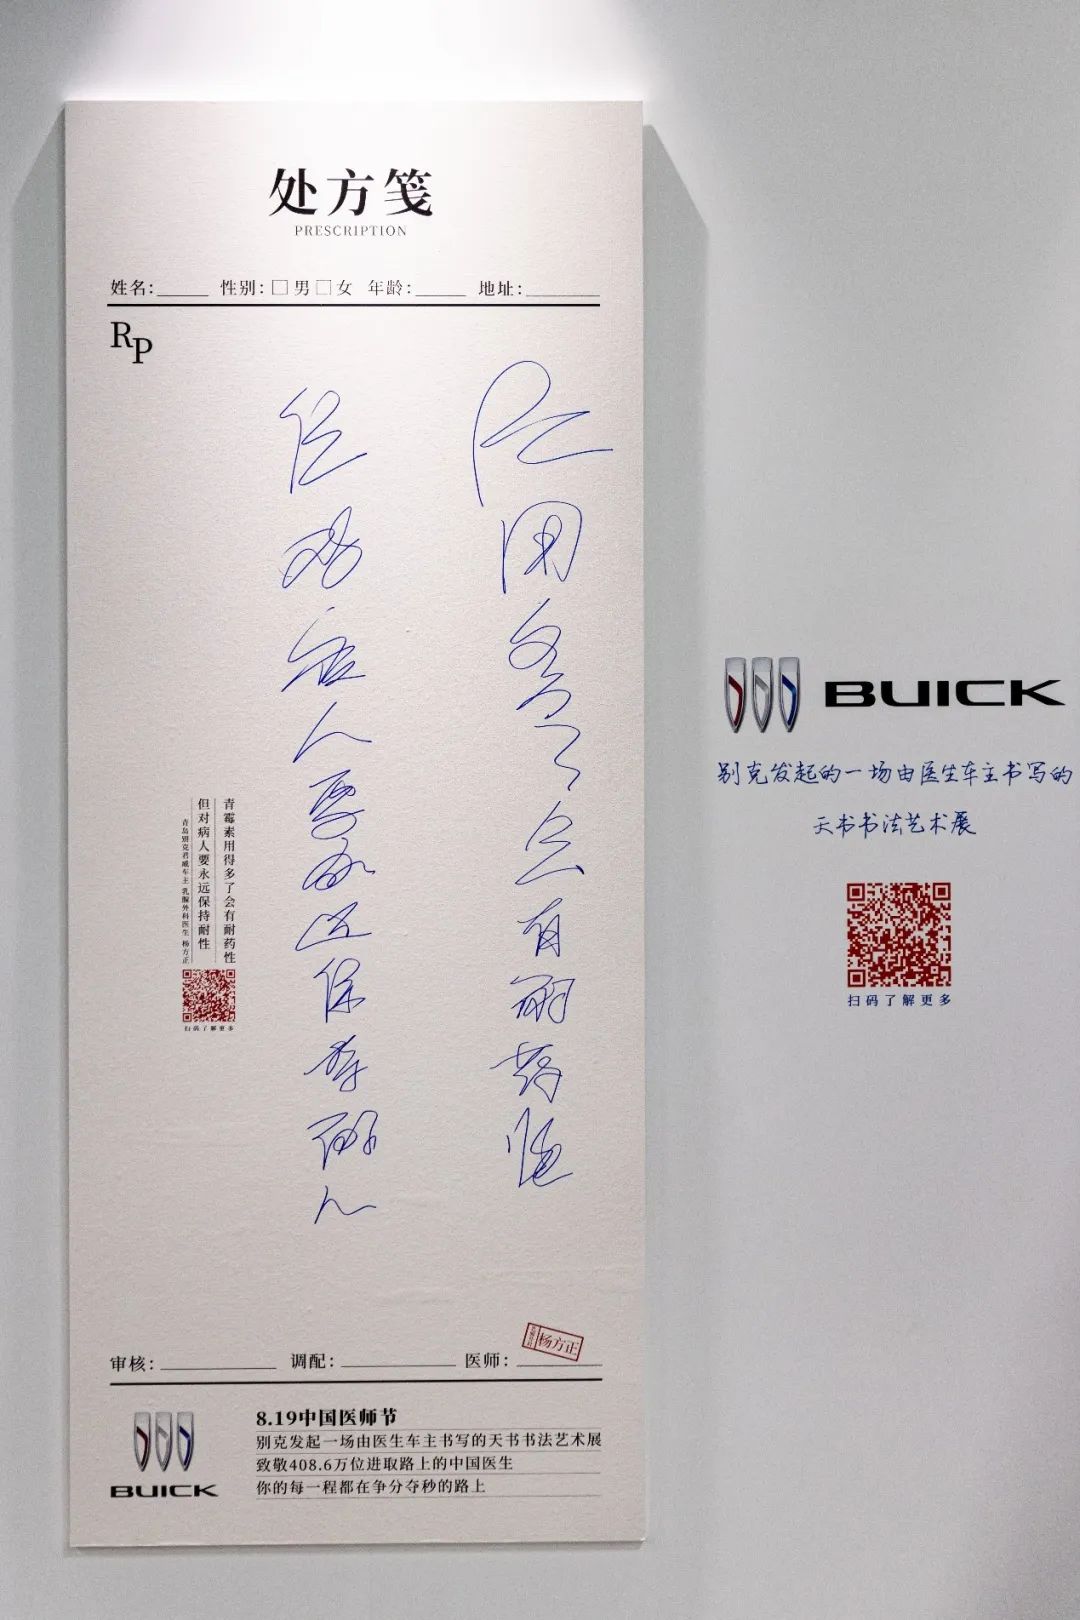 处方笺
PRESCRIPTION
姓名：_____ 性别：□男□女 年龄：_____ 地址：_______
RP
用多了会有耐药性
但对病人要永远保持耐心
青霉素用得多了会有耐药性
但对病人要永远保持耐性
青岛别克君威车主 乳腺外科医生 杨方正
扫码了解更多
审核：___________ 调配：___________ 医师：________
杨方正
BUICK
8.19中国医师节
别克发起一场由医生车主书写的天书书法艺术展
致敬408.6万位进取路上的中国医生
你的每一程都在争分夺秒的路上
BUICK
别克发起的一场由医生车主书写的
天书书法艺术展
扫码了解更多